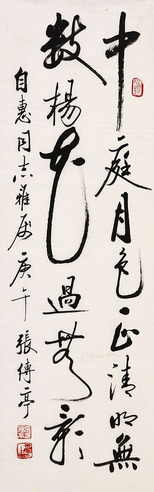 中庭月色正清明無
數楊花過無影
自惠同志雅屬庚午張傳亭